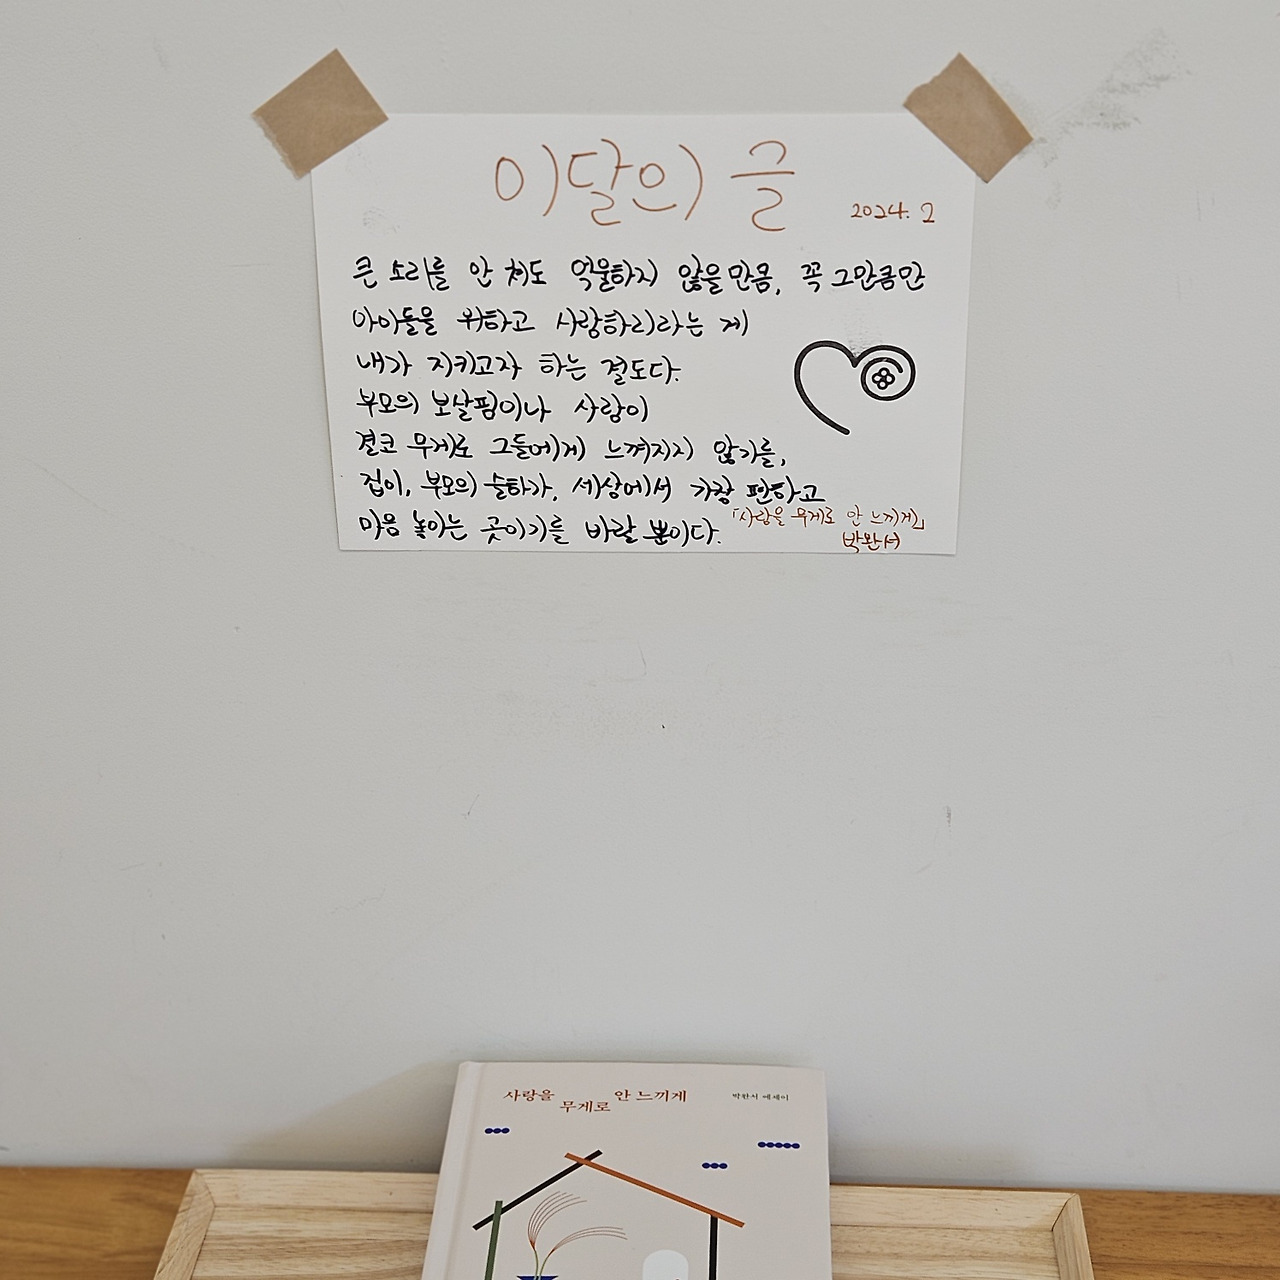 이달의 글
2024. 2
큰 소리를 안 쳐도 억울하지 않을 만큼, 꼭 그만큼만
아이들을 위하고 사랑하리라는 게
내가 지키고자 하는 절도다.
부모의 보살핌이나 사랑이
결코 무게로 그들에게 느껴지지 않기를,
집이, 부모의 슬하가, 세상에서 가장 편하고
마음 놓이는 곳이기를 바랄 뿐이다.
「사랑을 무게로 안 느끼게」
박완서
사랑을 무게로 안 느끼게
박완서 에세이